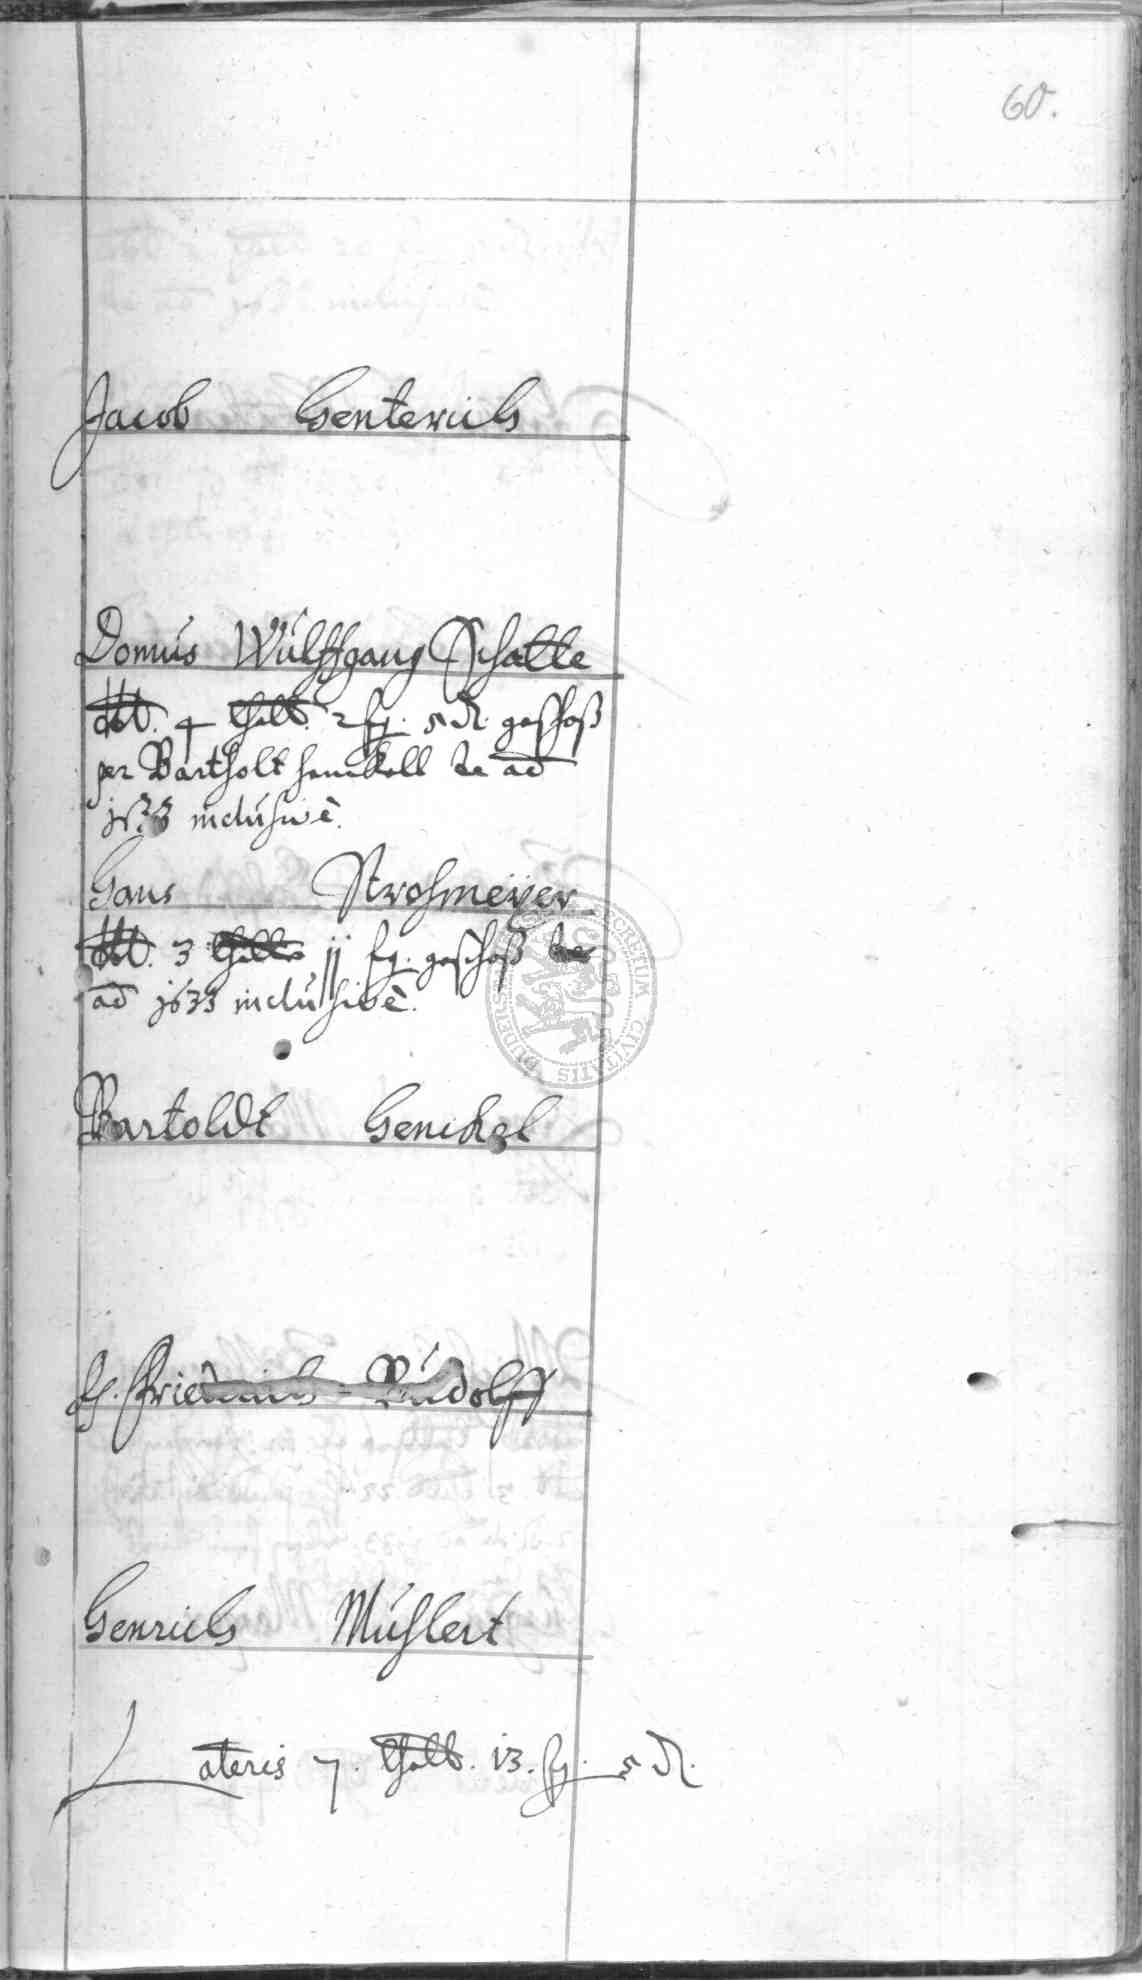 60.
Jacob Henterich
Domus Wulffgang Schatte
ddt. 4 thall. 2 sg. 5 d. geschoß
per Bartholt Henckell de ao
1633 inclusivè.
Hans Strohmeÿer
ddt. 3 thall. jj sg. geschoß de
ao 1633 inclusivè.
Bartoldt Henckel
H. Friedrich Rudolff
Henrich Muhlert
Lateris 7. thall. 13. sg. 5 d.
SECRETUM CIVITATIS